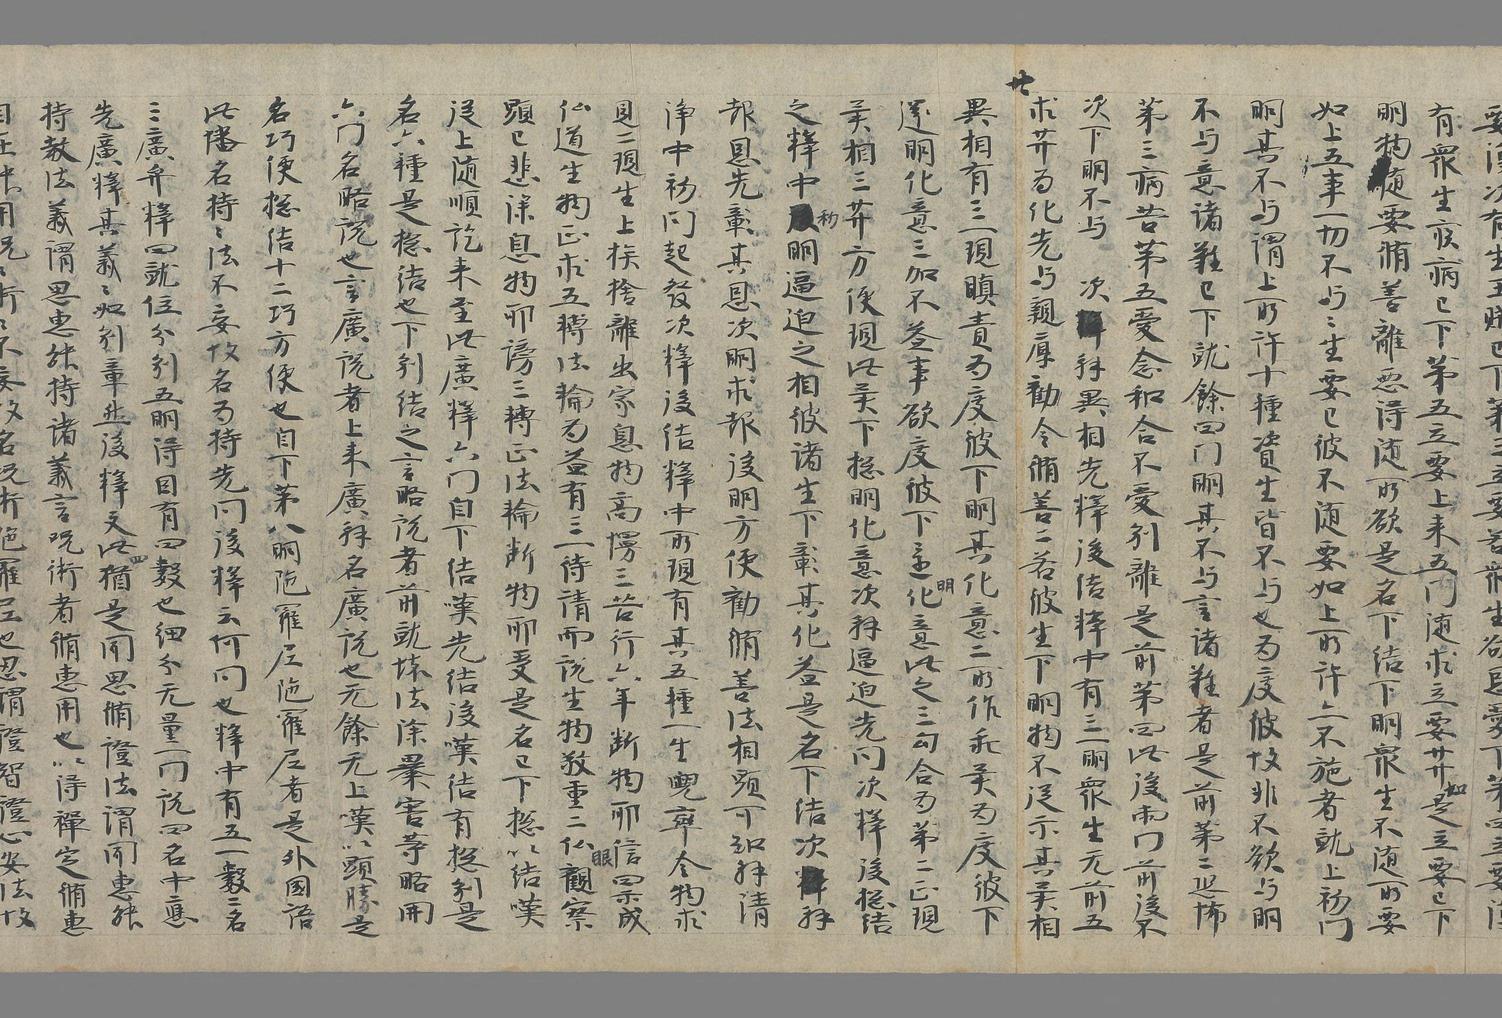 有眾生疾病已下第五立要上来五门随求立要廾如是立要已下
明物随要脩善離惡得随所欲是名下结下明眾生不随所要
如上五事一切不与々生要已彼不随要如上所许亠不施者就上初门
明其不与謂上所许十種資生皆不与也为度彼故非不欲与明
不与意诸難已下就餘四门明其不与言诸難者是前第二恐怖
第三病苦第五爱念和合不爱别離是前第四此後兩门前後不
次下明不与 次释異相先釋後结釋中有三一明眾生无前五
求廾为化先与親厚勸令脩善二若彼生下明物不從示其異相
異相有三一現瞋責为度彼下明其化意二所作乖异为度彼下
還明化意三加不益事欲度彼下亠明化意此之三句合为第二正現
异相三廾方便現此异下捴明化意次释逼迫先问次释後捴结
之释中初明逼迫之相彼诸生下彰其化益是名下结次释
報恩先彰其恩次明求報後明方便勸脩善法相顯可知释清
净中初问起發次釋後结釋中所現有其五種一生兜率令物求
見二現生上族捨離出家息物高愕三苦行六年断物邪信四示成
仏道生物正求五轉法輪为益有三一待請而説生物敬重二仏眼觀察
顯已悲深息物邪謗三轉正法輪断物邪受是名已下捴以结嘆
從上随順訖来至此廣釋六门自下结嘆先结後嘆结有捴别是
名六種是捴结也下别结之言略説者前就壞法除眾害等略開
六门名略説也言廣説者上来廣释名廣説也无餘无上嘆以顯勝是
名巧便捴结十二巧方便也自下第八明陁羅尼陁羅尼者是外國語
此翻名持々法不妄故名为持先问後釋云何问也釋中有五一數二名
三廣弁釋四就位分别五明得因有四數也细分无量一门説四名中應
先廣釋其義々如别章然後釋文此四猶是聞思脩證法謂聞惠能
持教法義謂思惠能持诸義言呪術者脩惠用也以得禪定脩惠